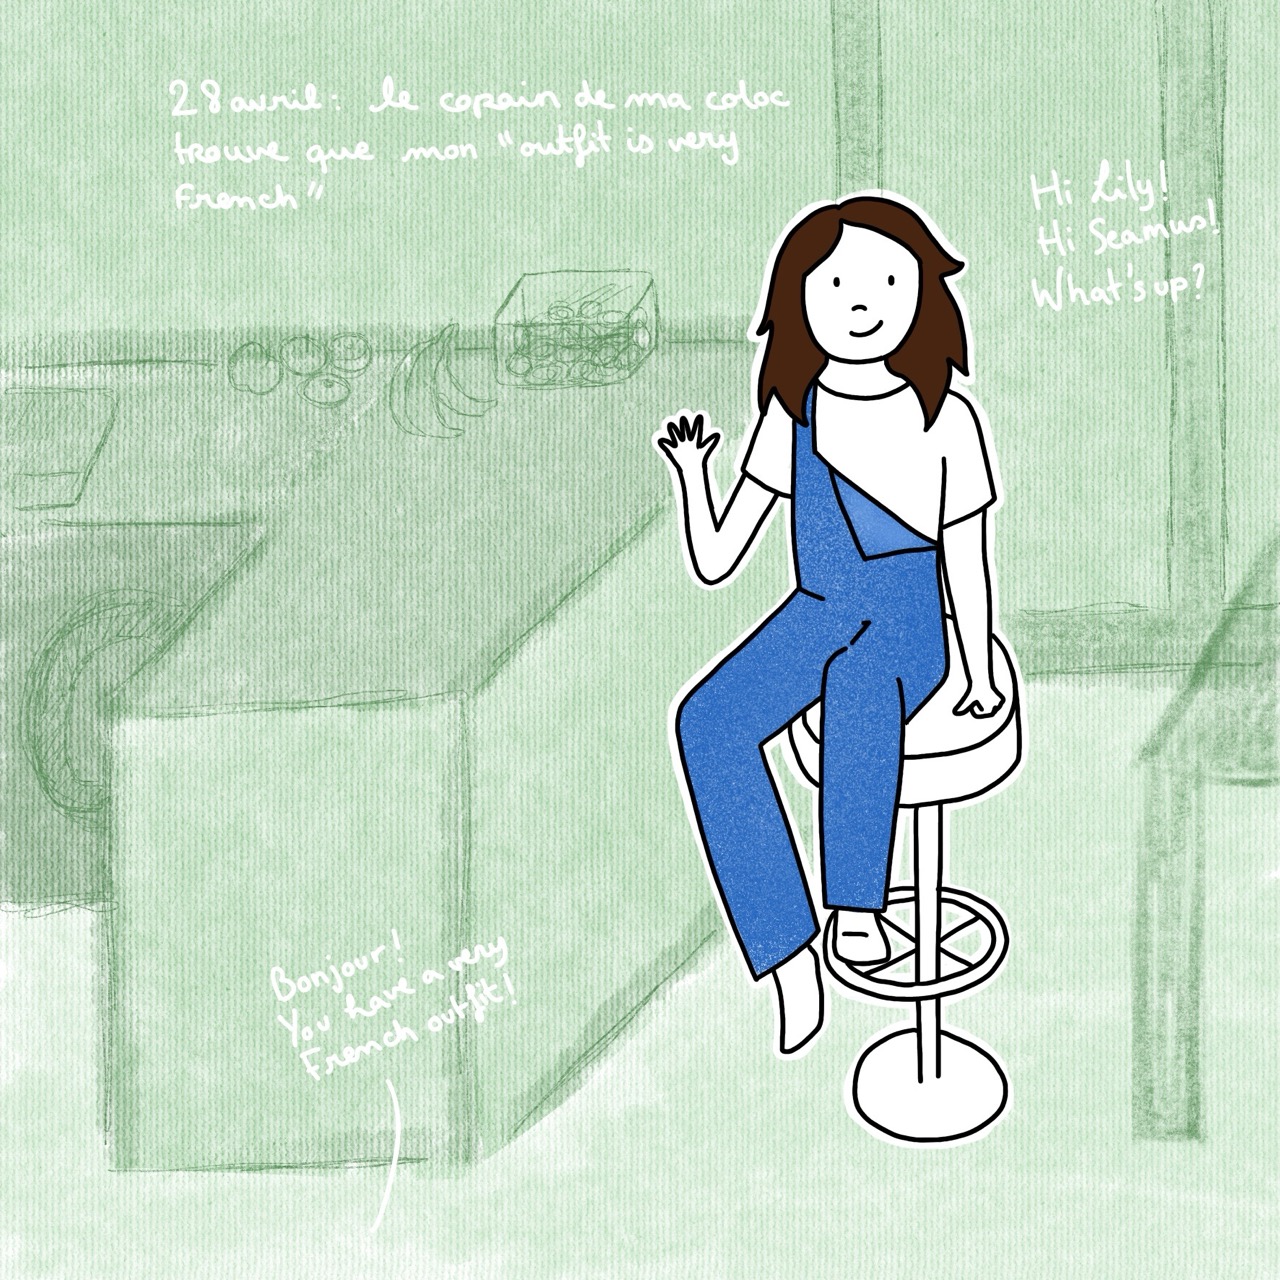 28 avril: le copain de ma coloc
trouve que mon "outfit is very
French"
Hi Lily!
Hi Seamus!
What's up?
Bonjour!
You have a very
French outfit!